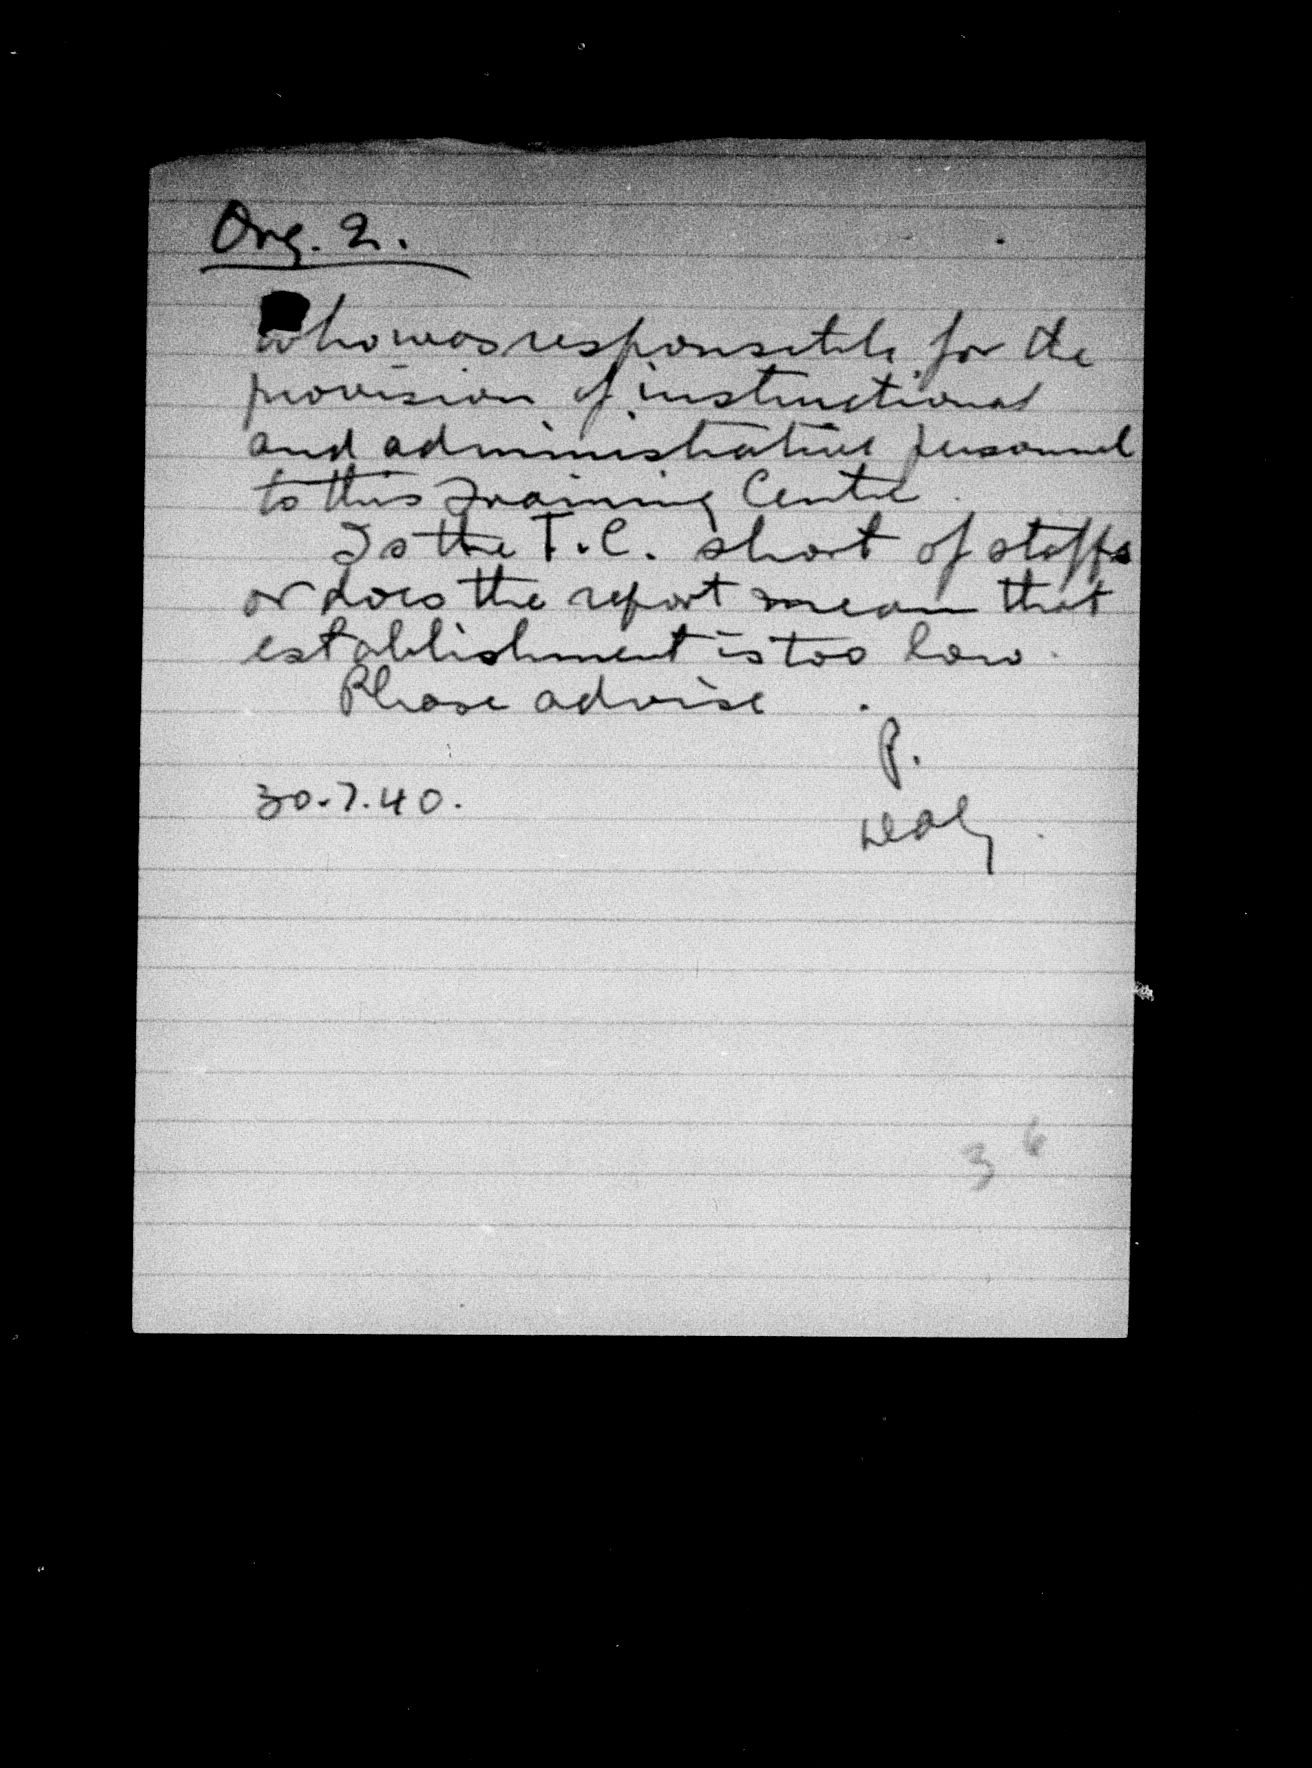 Org. 2.
Who was responsible for the
provision of instructional
and administrative personnel
to this Training Centre.
Is the T.C. short of staffs
or does the report mean that
establishment is too low.
Please advise.
P.
30.7.40.
36